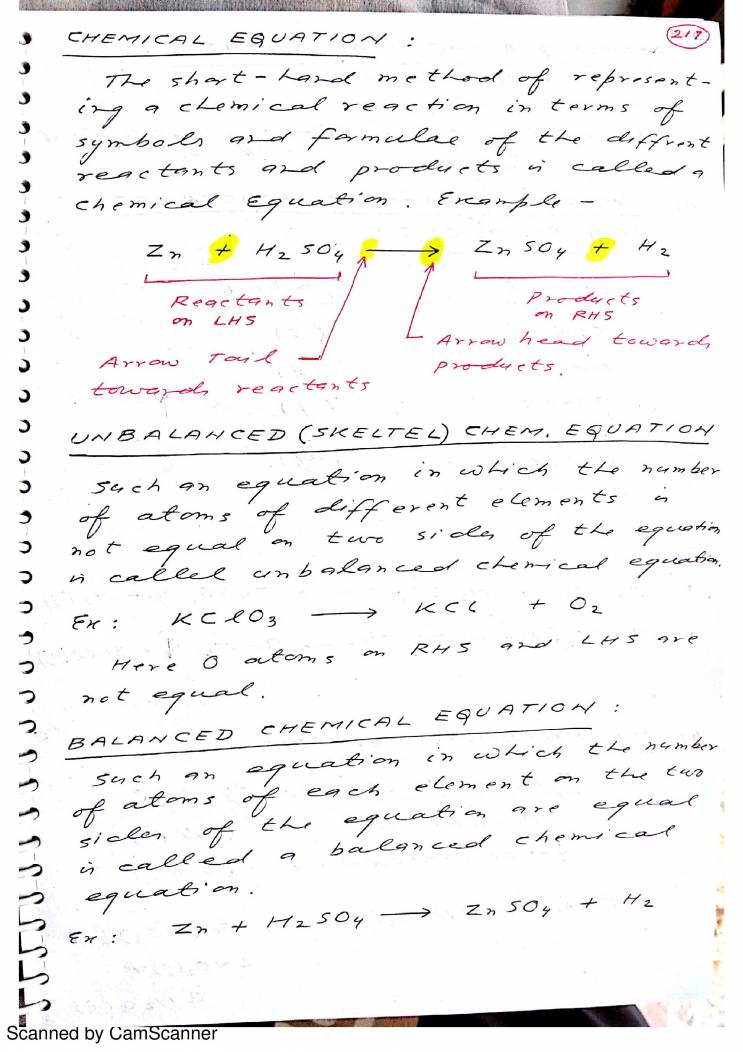 CHEMICAL EQUATION :
217
The short-hand method of represent-
ing a chemical reaction in terms of
symbols and formulae of the diffrent
reactants and products is called a
chemical Equation. Example -
Zn + H2SO4 ⟶ ZnSO4 + H2
Reactants
on LHS
Products
on RHS
Arrow Tail
towards reactants
Arrow head towards
products.
UNBALANCED (SKELTEL) CHEM. EQUATION
Such an equation in which the number
of atoms of different elements is
not equal on two sides of the equation
is called unbalanced chemical equation.
Ex : KClO3 ⟶ KCl + O2
Here O atoms on RHS and LHS are
not equal.
BALANCED CHEMICAL EQUATION :
Such an equation in which the number
of atoms of each element on the two
sides of the equation are equal
is called a balanced chemical
equation.
Ex : Zn + H2SO4 ⟶ ZnSO4 + H2
Scanned by CamScanner